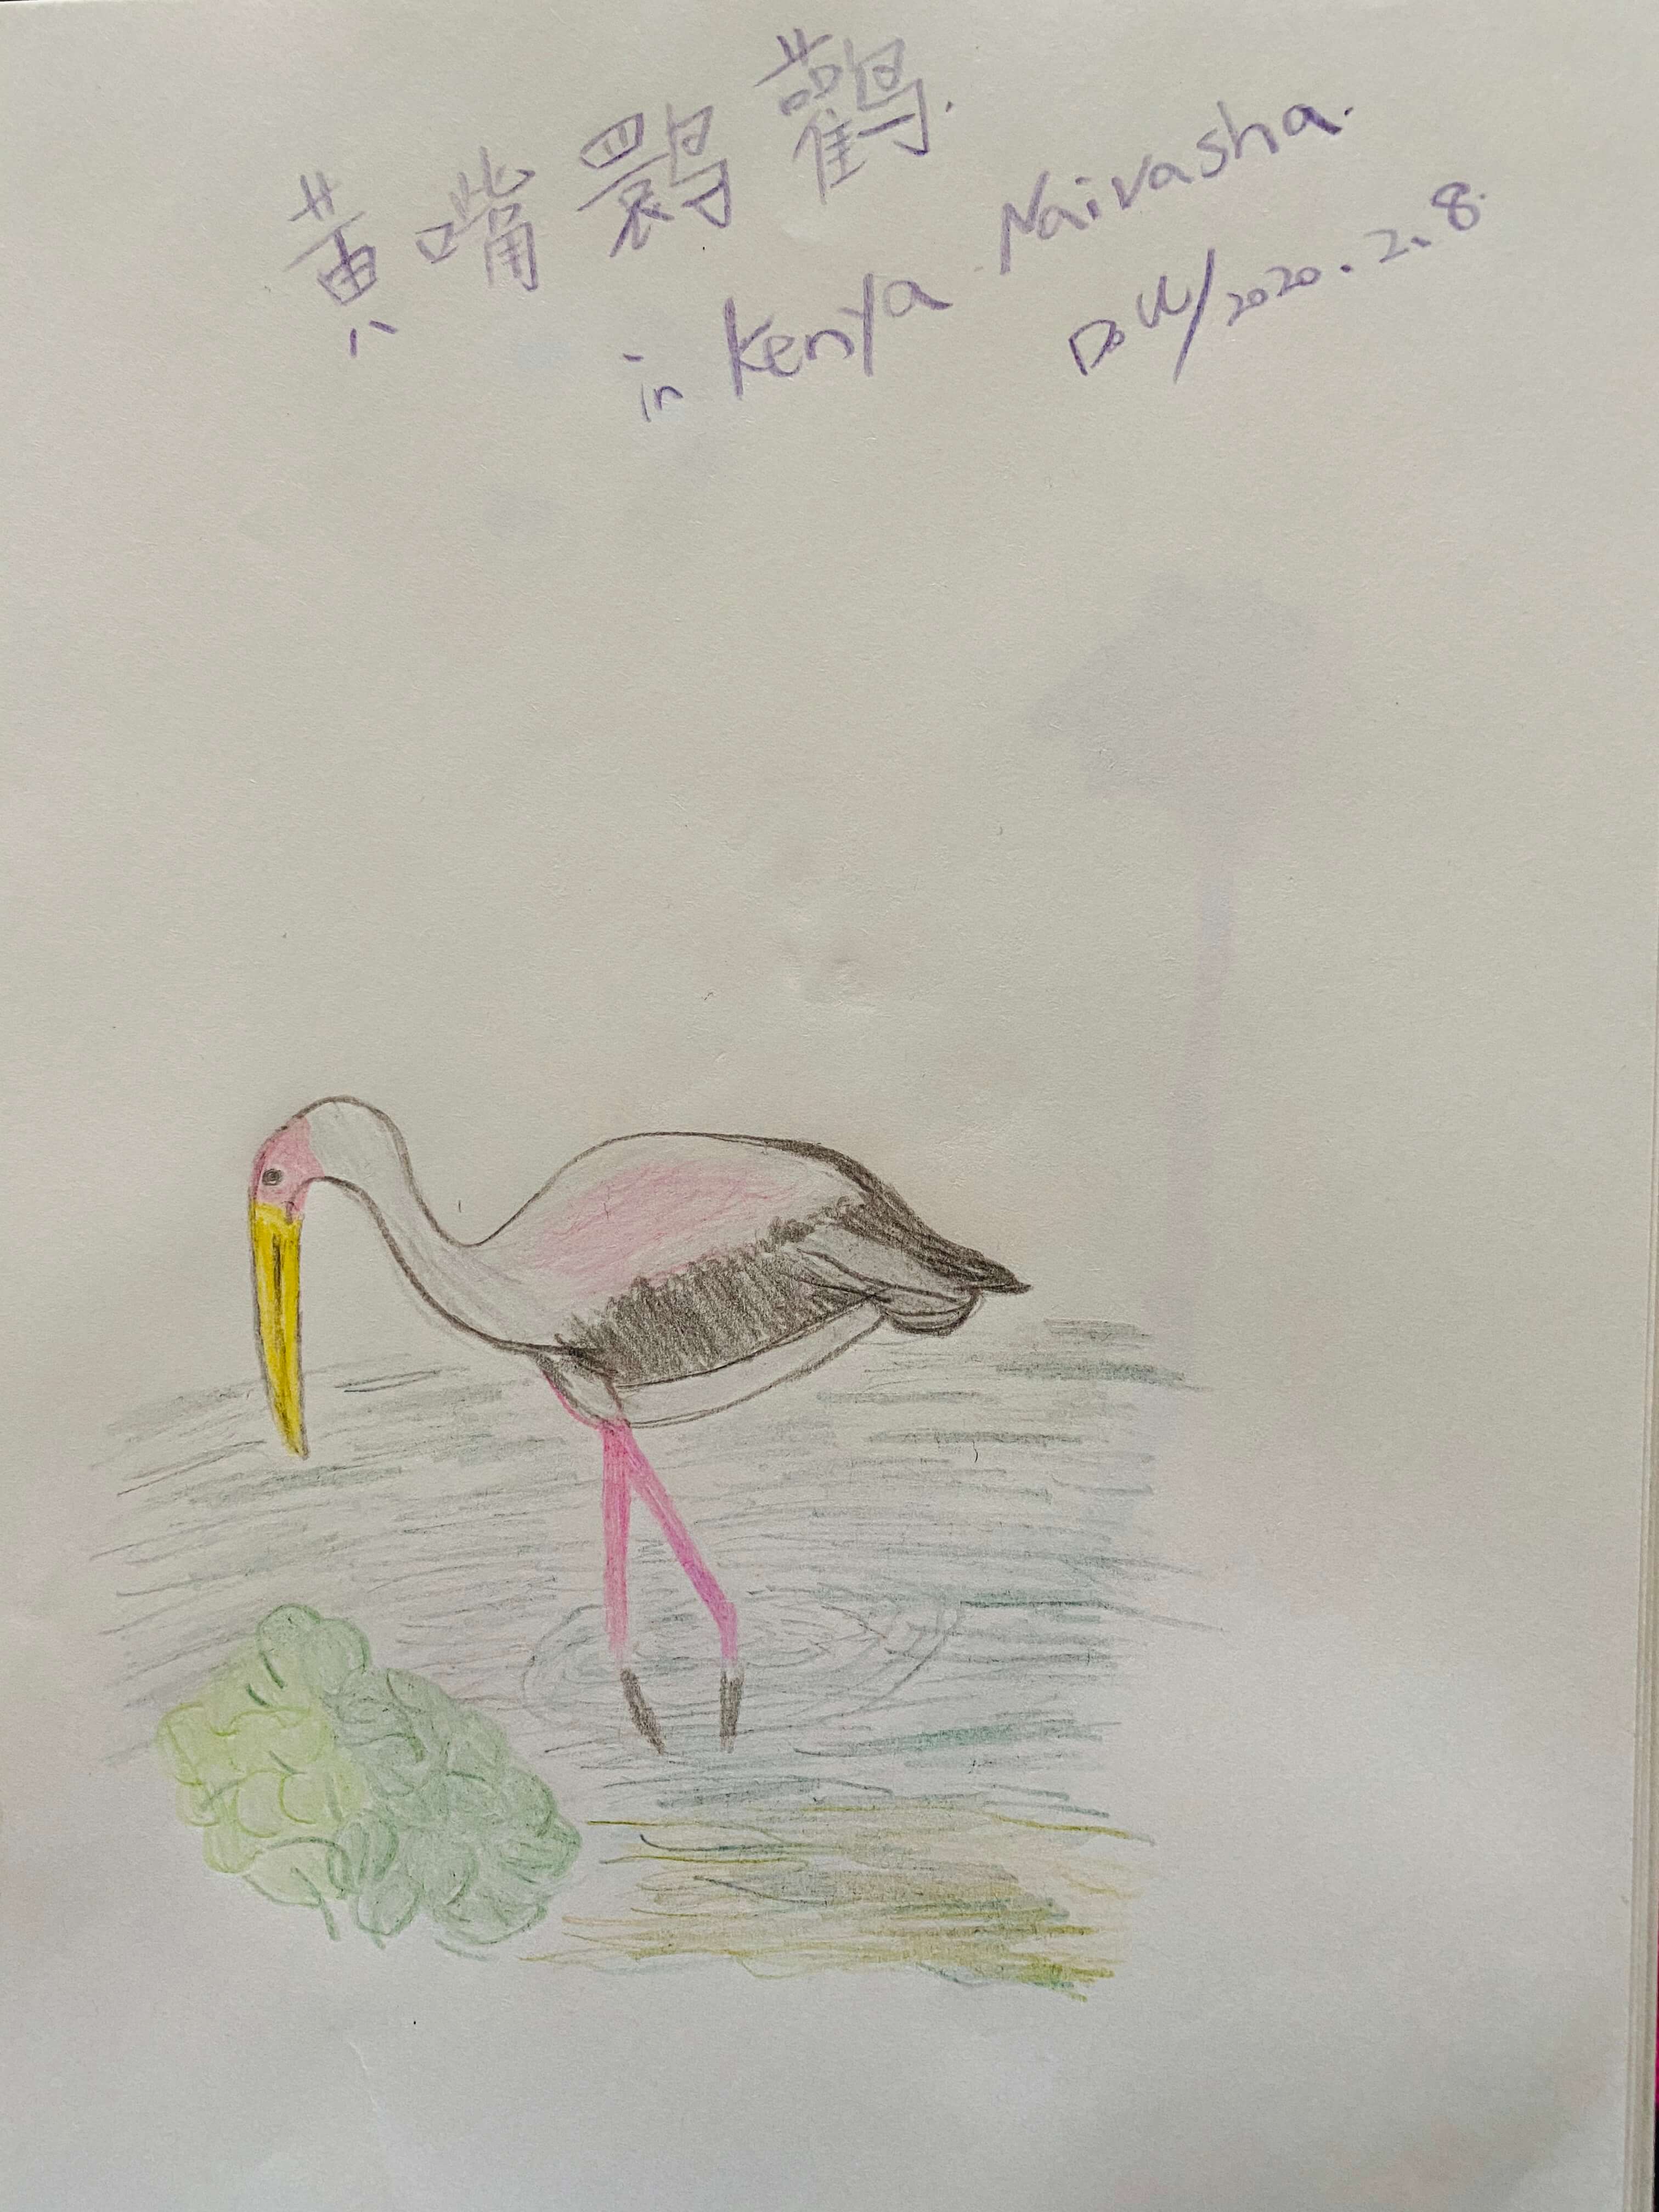 黄嘴鹮鹳.
in Kenya Naivasha.
2020.2.8.